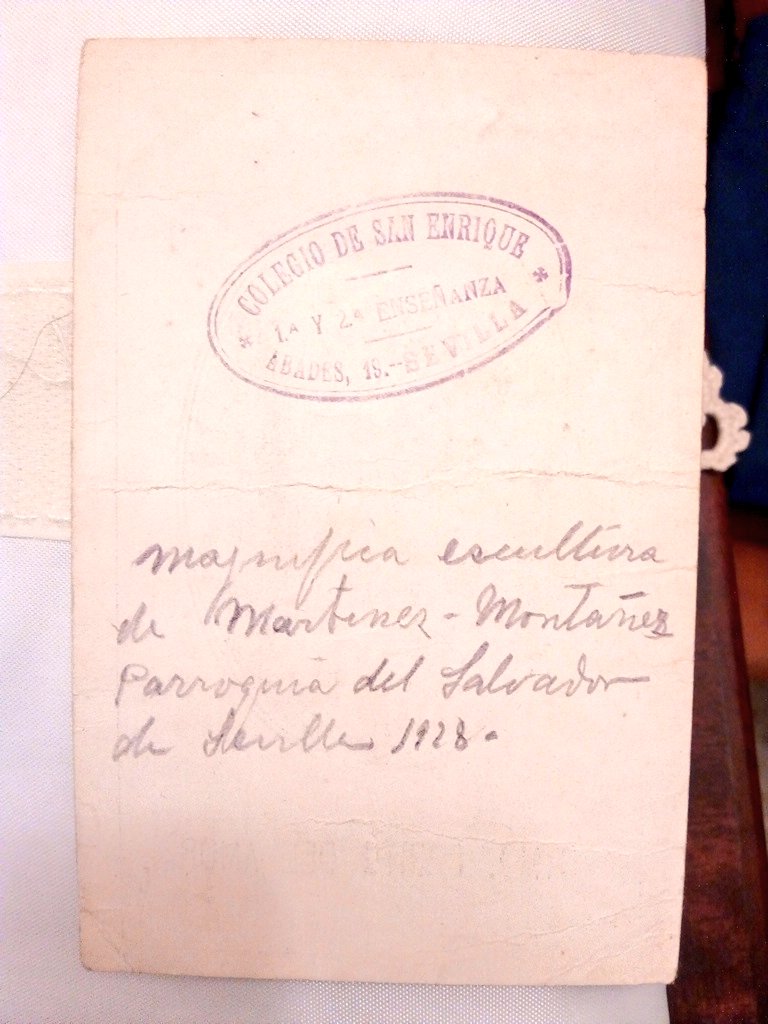 COLEGIO DE SAN ENRIQUE
1.ª Y 2.ª ENSEÑANZA
ABADES, 18.--SEVILLA
Magnifica escultura
de Martinez - Montañez
Parroquia del Salvador
de Sevilla 1928.